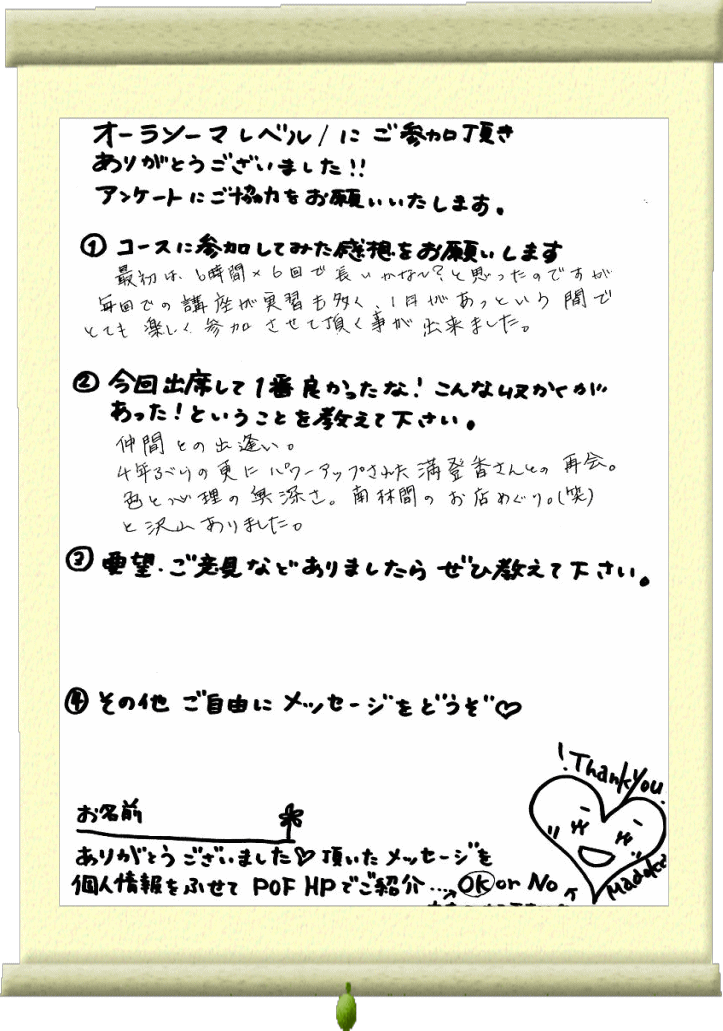 オーラソーマ レベル1に ご参加頂き
ありがとうございました!!
アンケートにご協力をお願いいたします。
① コースに参加してみた感想をお願いします
最初は、6時間×6回で長いかな〜?と思ったのですが
毎回での講座が実習も多く、1日があっという間で
とても楽しく参加させて頂く事が出来ました。
② 今回出席して1番良かったな!こんな収かくが
あった!ということを教えて下さい。
仲間との出逢い。
4年ぶりの更にパワーアップされた満登香さんとの再会。
色と心理の奥深さ。南林間のお店めぐり。(笑)
と沢山ありました。
③ 要望・ご意見などありましたら ぜひ教えて下さい。
④ その他 ご自由に メッセージをどうぞ♡
!Thank you.
お名前
ありがとうございました♡ 頂いた メッセージを
個人情報をふせて POF HPでご紹介…→OK or No
Madoka